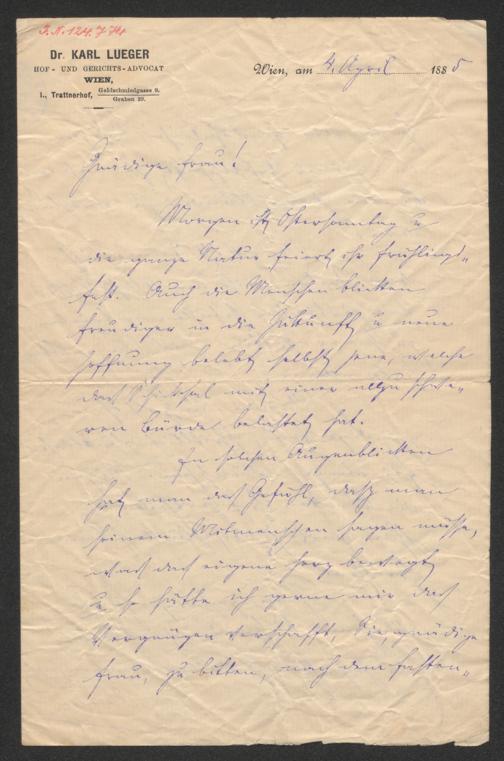 J. N. 124.774
Dr. KARL LUEGER
HOF- UND GERICHTS-ADVOCAT
WIEN,
I., Trattnerhof, Goldschmiedgasse 9.
Graben 29.
Wien, am 4. April 1885
Gnädige Frau!
Morgen ist Ostersonntag u
die ganze Natur feiert ihr Frühlings-
fest. Auch die Menschen blicken
freudiger in die Zukunft u neue
Hoffnung belebt selbst jene, welche
das Schicksal mit einer allzu schwe-
ren Bürde belastet hat.
In solchen Augenblicken
hat man das Gefühl, daß man
seinem Mitmenschen sagen müsse,
was das eigene Herz bewegt
u so hätte ich gerne mir das
Vergnügen verschafft, Sie, gnädige
Frau, zu bitten, nach dem Fasten-